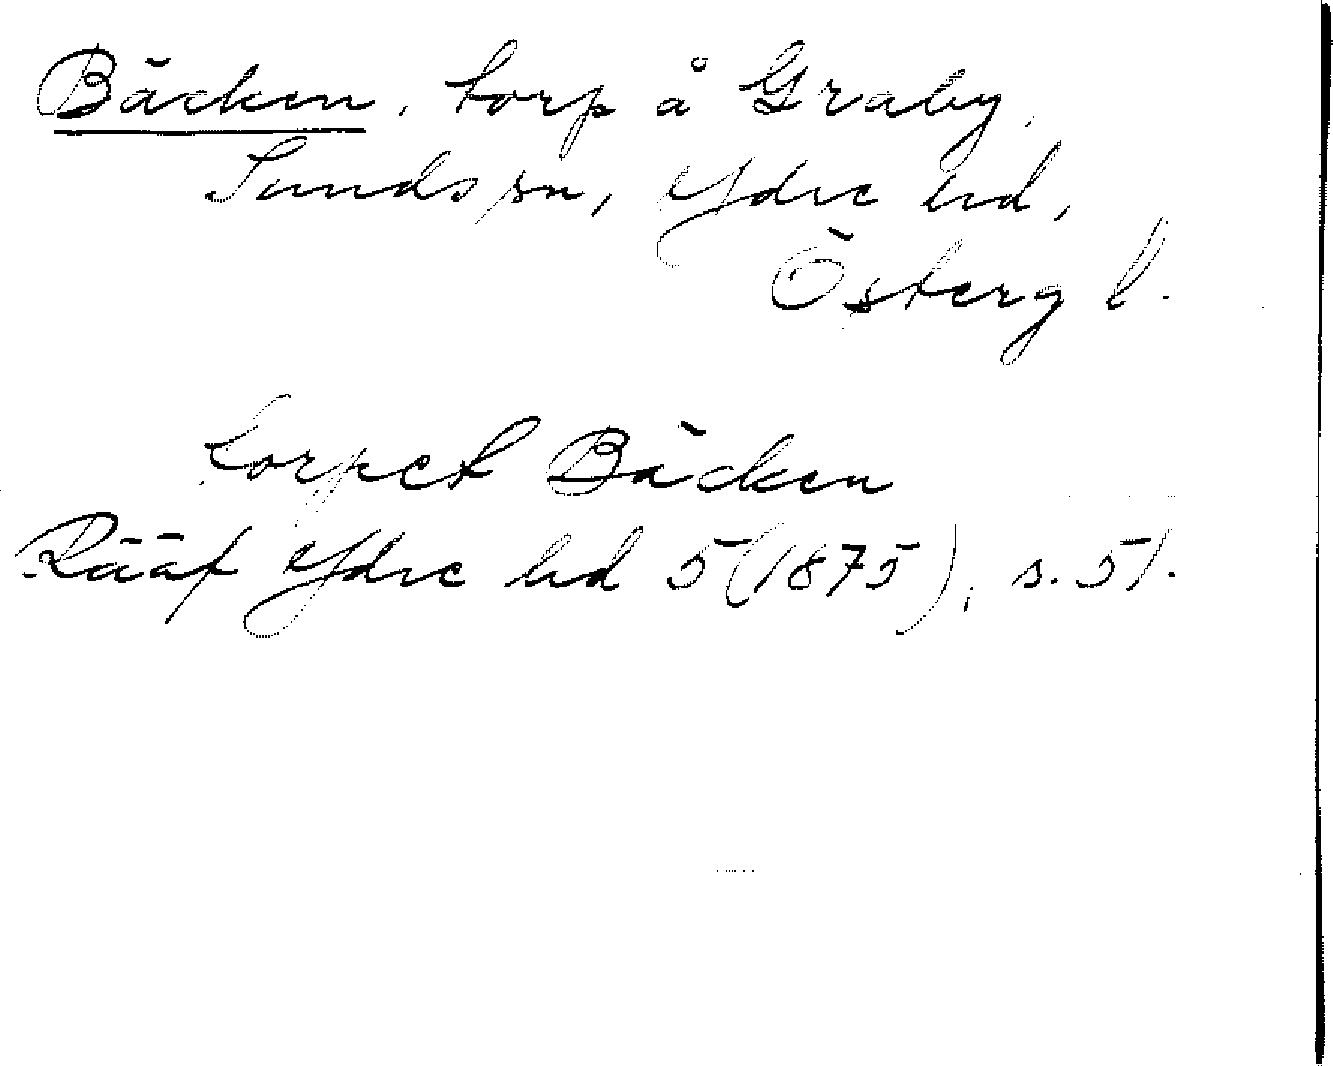 Bäcken, torp å Graby,
Sunds sn, Ydre hd,
Österg l.
Torpet Bäcken
Rääf Ydre hd 5 (1875), s. 51.